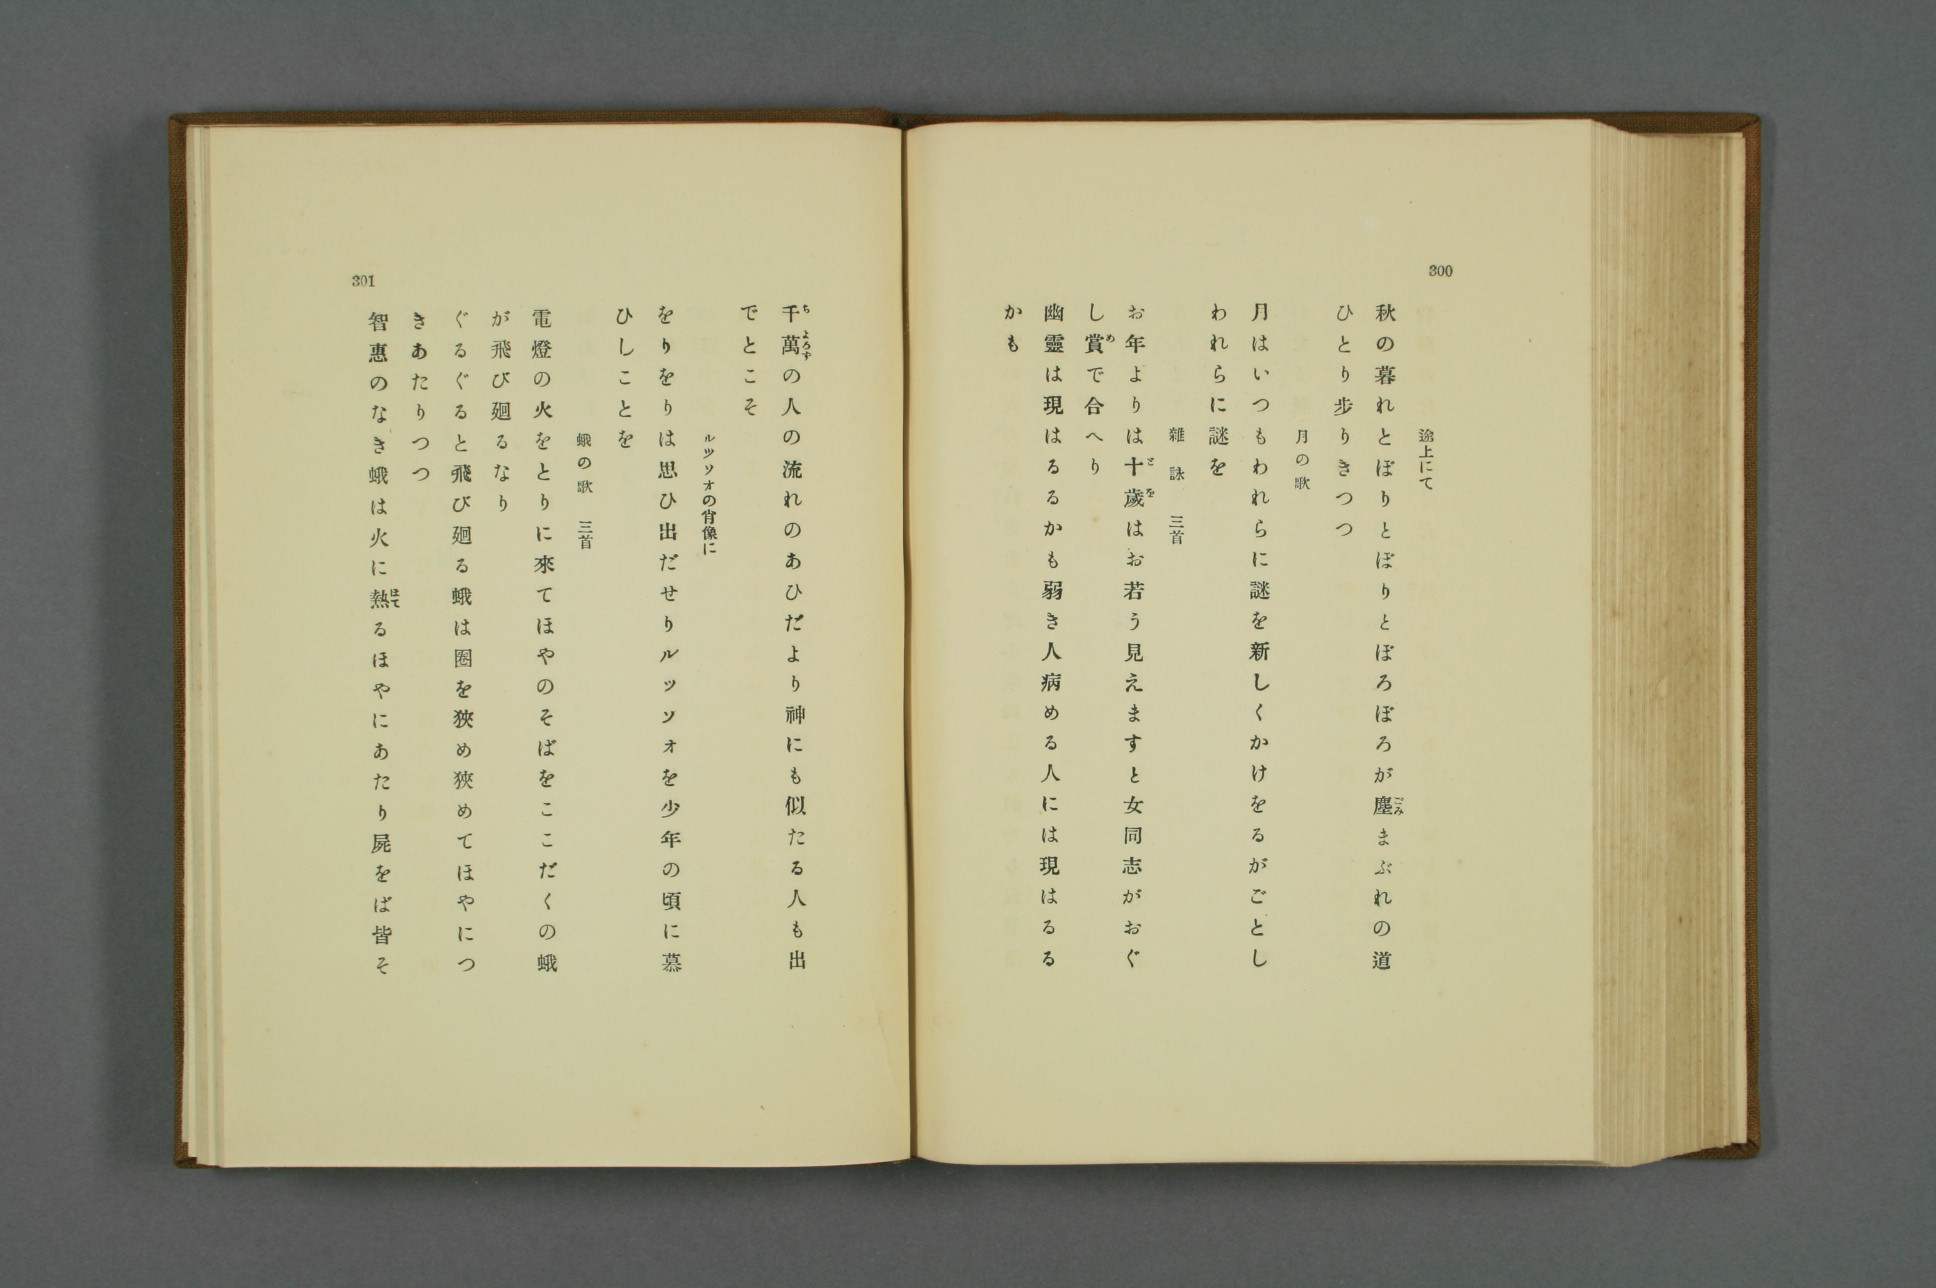 300
途上にて
秋の暮れとぼりとぼりとぼろぼろが塵まぶれの道
ひとり歩りきつつ
月の歌
月はいつもわれらに謎を新しくかけをるがごとし
われらに謎を
雜詠 三首
お年よりは十歲はお若う見えますと女同志がおぐ
し賞で合へり
幽靈は現はるるかも弱き人病める人には現はるる
かも
301
千萬の人の流れのあひだより神にも似たる人も出
でとこそ
ルツソオの肖像に
をりをりは思ひ出だせりルッソォを少年の頃に慕
ひしことを
蛾の歌 三首
電燈の火をとりに來てほやのそばをここだくの蛾
が飛び廻るなり
ぐるぐると飛び廻る蛾は圈を狹め狹めてほやにつ
きあたりつつ
智惠のなき蛾は火に熱るほやにあたり屍をば皆そ